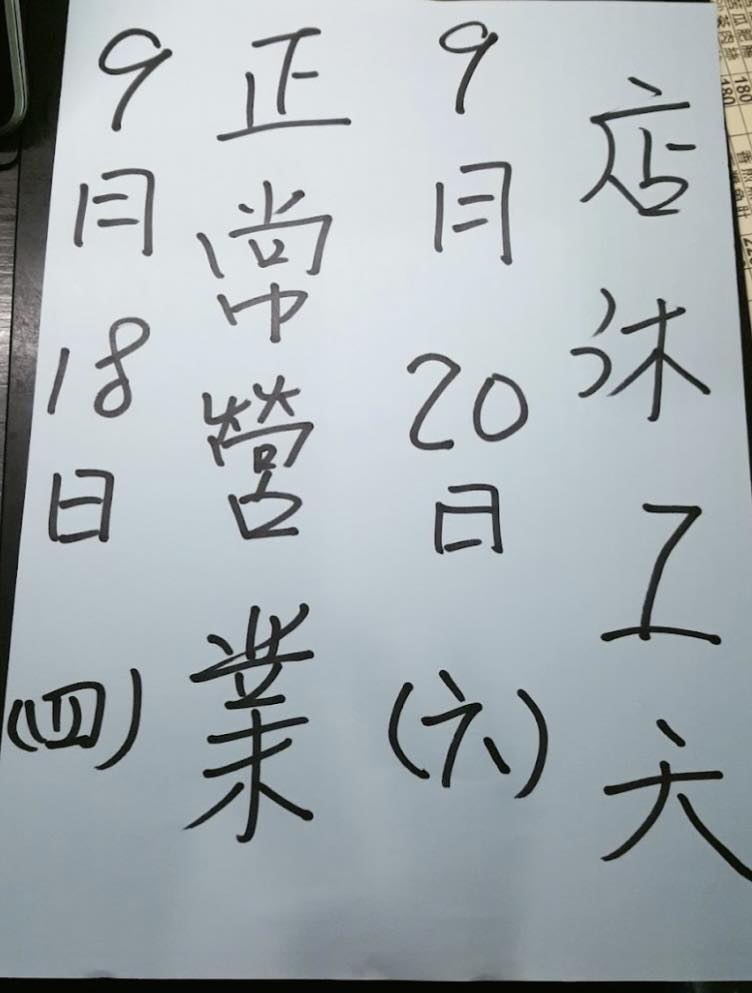 9月18日(四)
正常營業
9月20日(六)
店休1天